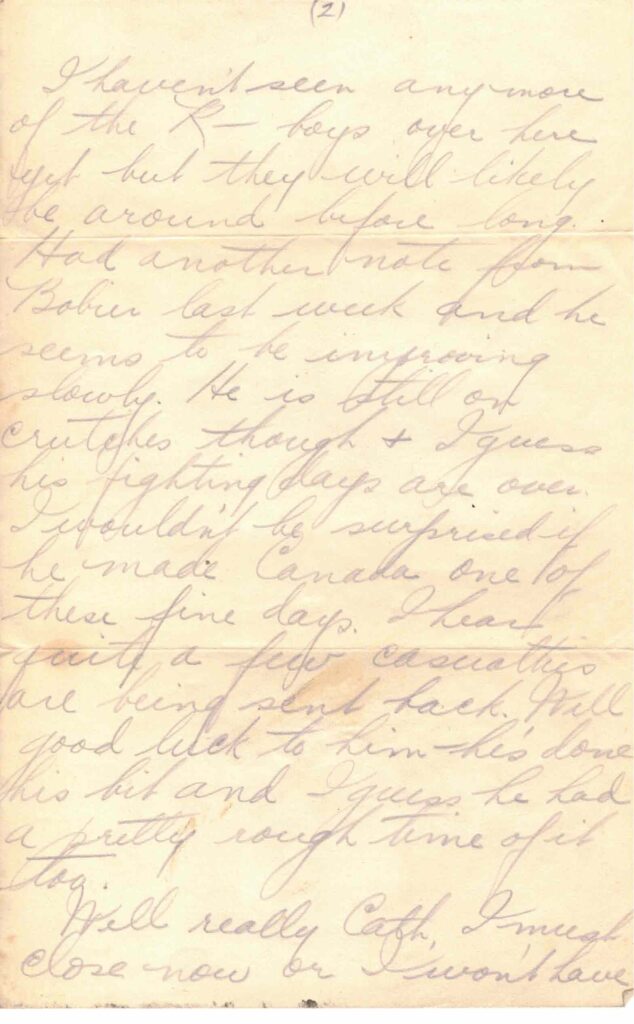 (2)
I haven't seen any more
of the R— boys over here
yet but they will likely
be around before long.
Had another note from
Bobier last week and he
seems to be improving
slowly. He is still on
crutches though & I guess
his fighting days are over.
I wouldn't be surprised if
he made Canada one of
these fine days. I hear
quite a few casualties
are being sent back. Well
good luck to him—he's done
his bit and I guess he had
a pretty rough time of it
too.
Well really Cath, I must
close now or I won't have